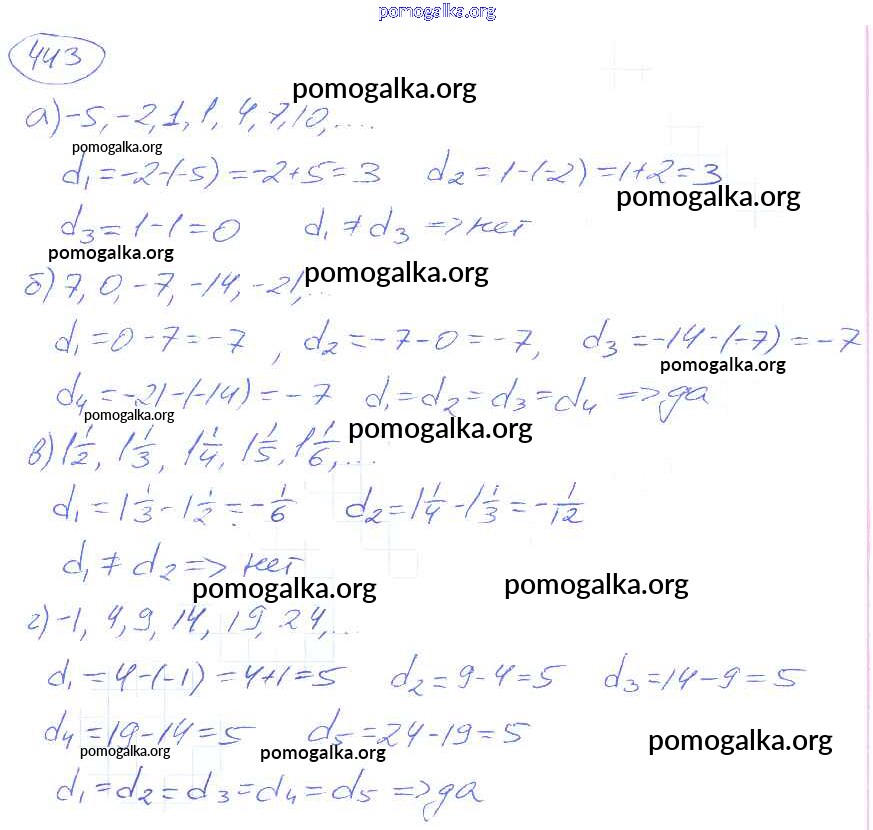 pomogalka.org
443
pomogalka.org
а) -5, -2, 1, 1, 4, 7, 10, ...
pomogalka.org
d₁ = -2-(-5) = -2+5 = 3 d₂ = 1-(-2) = 1+2 = 3
pomogalka.org
d₃ = 1-1 = 0 d₁ ≠ d₃ => нет
pomogalka.org
pomogalka.org
б) 7, 0, -7, -14, -21, ...
d₁ = 0-7 = -7, d₂ = -7-0 = -7, d₃ = -14-(-7) = -7
pomogalka.org
d₄ = -21-(-14) = -7 d₁ = d₂ = d₃ = d₄ => да
pomogalka.org
pomogalka.org
в) 1 1/2, 1 1/3, 1 1/4, 1 1/5, 1 1/6, ...
d₁ = 1 1/3 - 1 1/2 = -1/6 d₂ = 1 1/4 - 1 1/3 = -1/12
d₁ ≠ d₂ => нет
pomogalka.org
pomogalka.org
г) -1, 4, 9, 14, 19, 24, ...
d₁ = 4-(-1) = 4+1 = 5 d₂ = 9-4 = 5 d₃ = 14-9 = 5
d₄ = 19-14 = 5 d₅ = 24-19 = 5
pomogalka.org
pomogalka.org
pomogalka.org
d₁ = d₂ = d₃ = d₄ = d₅ => да